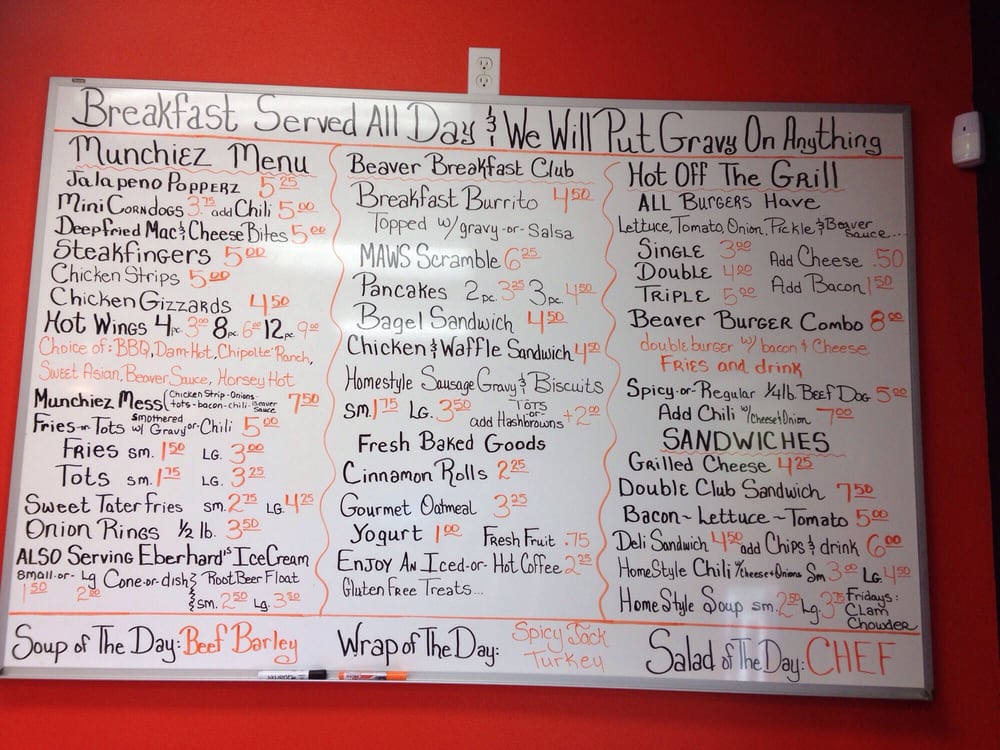 Breakfast Served All Day & We Will Put Gravy On Anything
Munchiez Menu
Jalapeno Popperz 5.25
Mini Corndogs 3.75 add Chili 5.00
Deepfried Mac & Cheese Bites 5.00
Steakfingers 5.00
Chicken Strips 5.00
Chicken Gizzards 4.50
Hot Wings 4pc. 3.00 8pc. 6.00 12pc. 9.00
Choice of: BBQ, Dam-Hot, Chipolte Ranch,
Sweet Asian, Beaver Sauce, Horsey Hot
Munchiez Mess (Chicken Strip-Onions-
tots-bacon-chili-Beaver Sauce 7.50
Fries-or-Tots smothered w/ Gravy-or-Chili 5.00
Fries sm. 1.50 LG. 3.00
Tots sm. 1.75 LG. 3.25
Sweet Tater fries sm. 2.75 LG. 4.25
Onion Rings 1/2 lb. 3.50
ALSO Serving Eberhard's Ice Cream
Small-or-Lg Cone-or-dish Root Beer Float
1.50 2.00 sm. 2.50 Lg. 3.50
Beaver Breakfast Club
Breakfast Burrito 4.50
Topped w/gravy-or-Salsa
MAWS Scramble 6.25
Pancakes 2pc. 3.25 3pc. 4.50
Bagel Sandwich 4.50
Chicken & Waffle Sandwich 4.50
Homestyle Sausage Gravy & Biscuits
sm. 1.75 LG. 3.50 add Tots -or- Hashbrowns +2.00
Fresh Baked Goods
Cinnamon Rolls 2.25
Gourmet Oatmeal 3.25
Yogurt 1.00 Fresh Fruit .75
Enjoy An Iced-or-Hot Coffee 2.25
Gluten Free Treats...
Hot Off The Grill
ALL Burgers Have
Lettuce, Tomato, Onion, Pickle & Beaver Sauce....
Single 3.00 Add Cheese .50
Double 4.00 Add Bacon 1.50
Triple 5.00
Beaver Burger Combo 8.00
double burger w/ bacon & Cheese
Fries and drink
Spicy-or-Regular 1/4lb. Beef Dog 5.00
Add Chili w/Cheese & Onion 7.00
SANDWICHES
Grilled Cheese 4.25
Double Club Sandwich 7.50
Bacon~Lettuce~Tomato 5.00
Deli Sandwich 4.50 add Chips & drink 6.00
HomeStyle Chili w/Cheese & Onions Sm 3.00 LG. 4.50
Home Style Soup sm. 2.50 Lg. 3.75 Fridays: Clam Chowder
Soup of The Day: Beef Barley
Wrap of The Day: Spicy Jack Turkey
Salad of The Day: CHEF